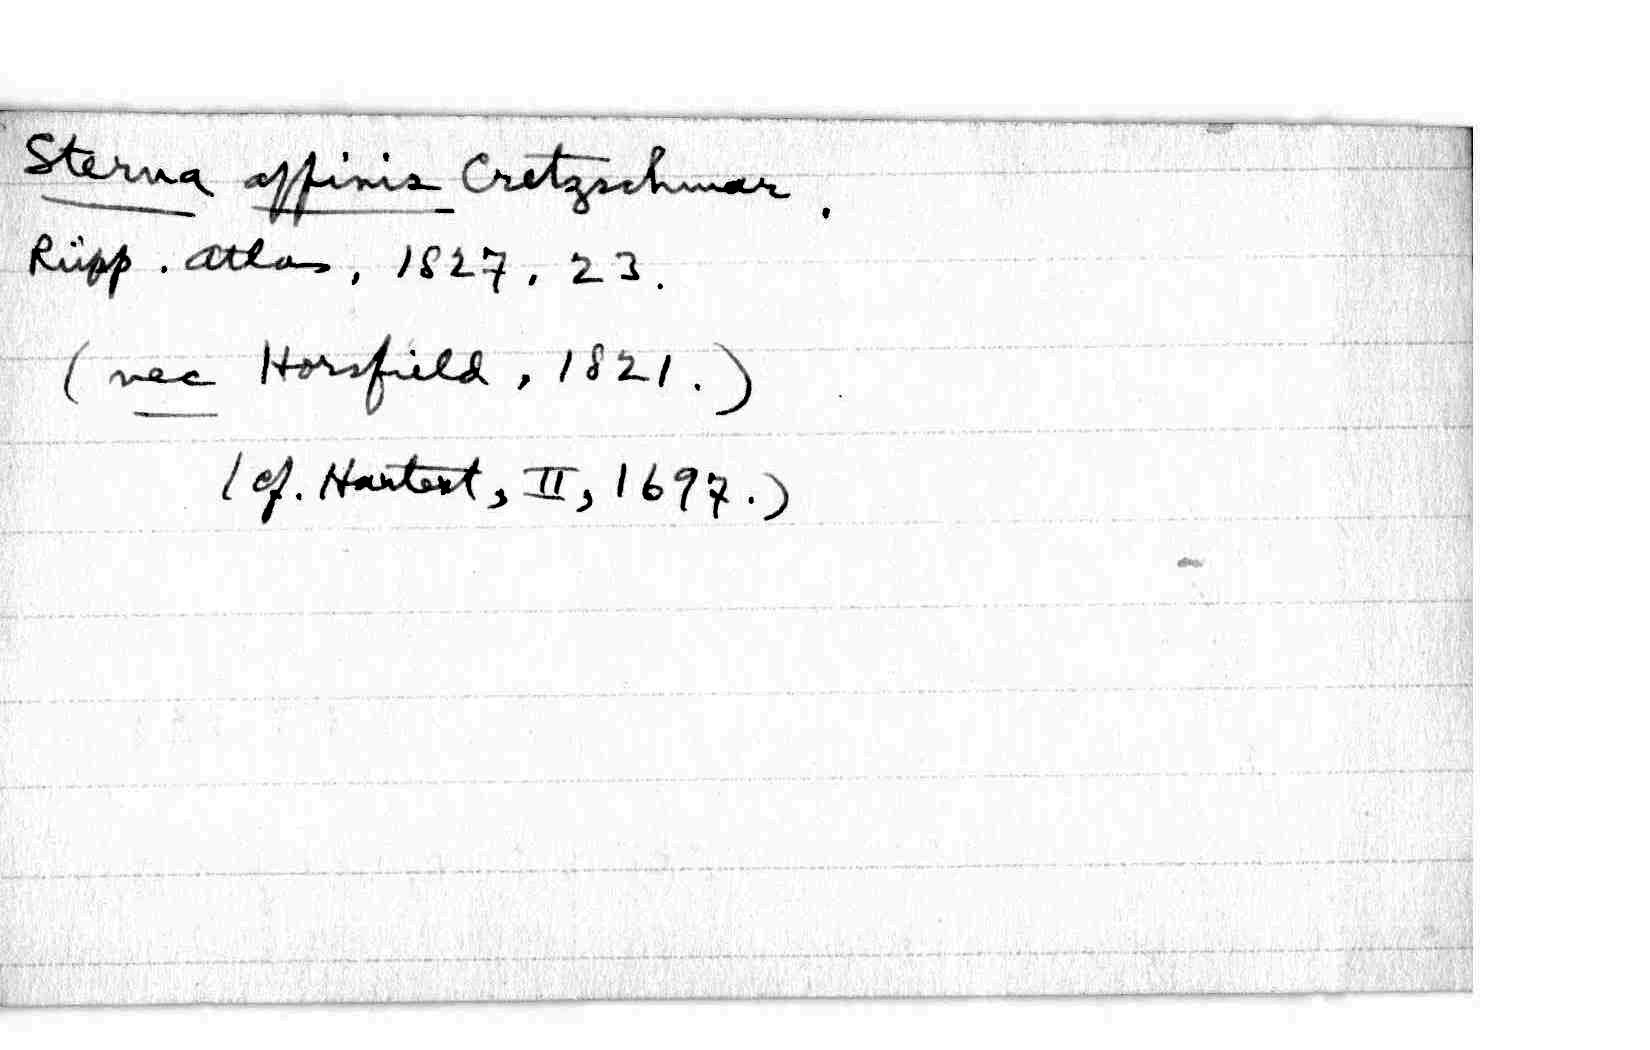 Sterna affinis Cretzschmar.
Rüpp. Atlas, 1827, 23.
(nec Horsfield, 1821.)
(cf. Hartert, II, 1697.)